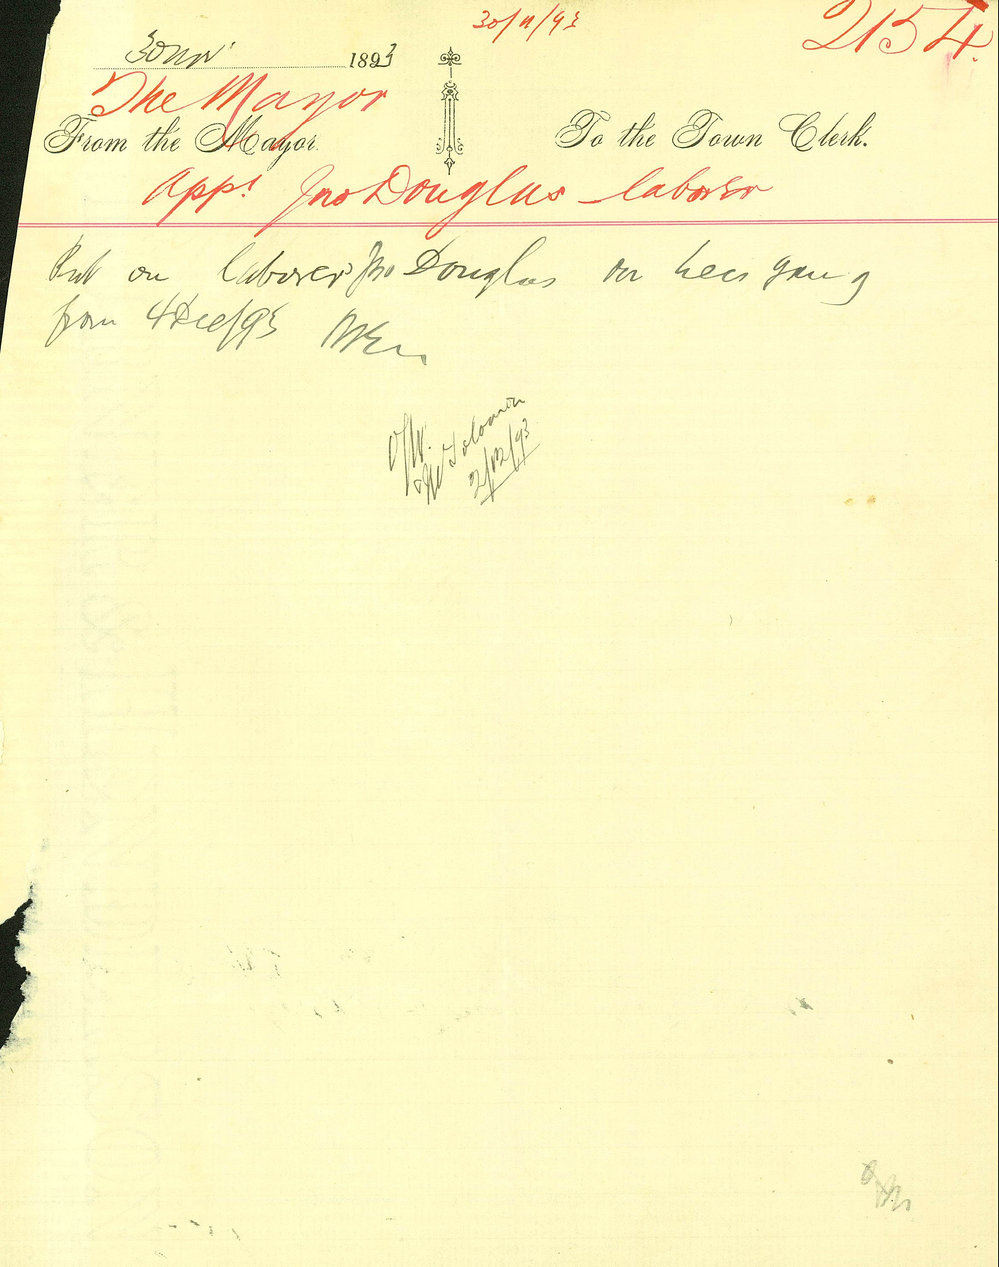 30/11/93
2154.
30 Nov 1893
The Mayor
From the Mayor. To the Town Clerk.
App! Jno Douglas laborer
Put on laborer Jno Douglas on Lees gang
from 4 Dec/93
2/12/93